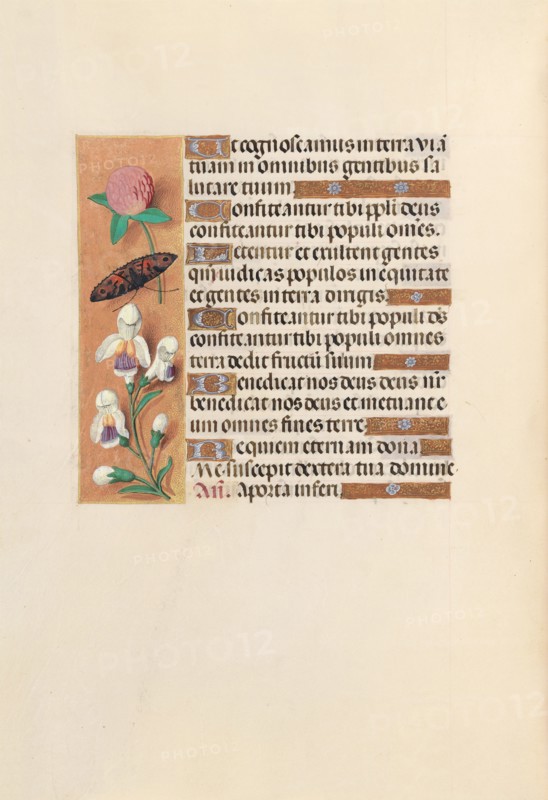 Ut cognoscamus in terra viā
tuam in omnibus gentibus sa
lutare tuum
Confiteantur tibi ppłi deus
confiteantur tibi populi om̄es.
Letentur et exultent gentes
qm̄ iudicas populos in equitate
et gentes in terra dirigis.
Confiteantur tibi populi ds̄
confiteantur tibi populi omnes
terra dedit fructū suum
Benedicat nos deus deus nr̄
benedicat nos deus et metuant e
um omnes fines terre
Requiem eternam dona
Me suscepit dextera tua domine
Añ. A porta inferi
PHOTO12
PHOTO12
PHOTO12
PHOTO12
PHOTO12
PHOTO12
PHOTO12
PHOTO12